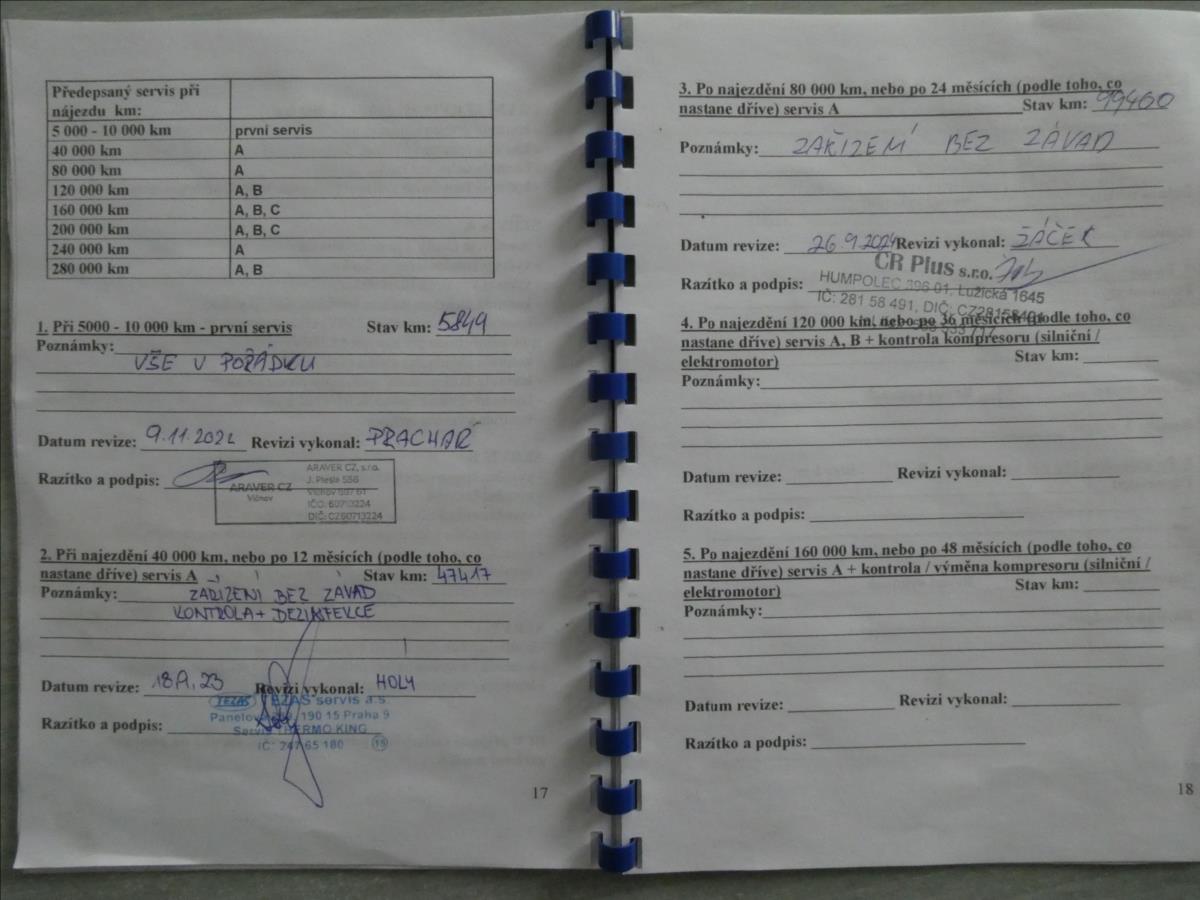 Předepsaný servis při
nájezdu km:
5 000 - 10 000 km první servis
40 000 km A
80 000 km A
120 000 km A, B
160 000 km A, B, C
200 000 km A, B, C
240 000 km A
280 000 km A, B
1. Při 5000 - 10 000 km - první servis Stav km: 5849
Poznámky:
VŠE V POŘÁDKU
Datum revize: 9.11.2022 Revizi vykonal: PRACHAŘ
Razítko a podpis:
ARAVER CZ
Vlčnov
ARAVER CZ, s.r.o.
Vlčnov 687 61
IČO: 60713224
DIČ: CZ60713224
2. Při najezdění 40 000 km, nebo po 12 měsících (podle toho, co
nastane dříve) servis A Stav km: 47417
Poznámky: ZAŘÍZENÍ BEZ ZÁVAD
KONTROLA + DEZINFEKCE
Datum revize: Revizi vykonal: HOLÝ
TEZAS TEZAS servis a.s.
190 15 Praha 9
Razítko a podpis:
Servis THERMO KING
IČ: 247 65 180 15
17
3. Po najezdění 80 000 km, nebo po 24 měsících (podle toho, co
nastane dříve) servis A Stav km: 99460
Poznámky: ZAŘÍZENÍ BEZ ZÁVAD
Datum revize: 26.9.2024 Revizi vykonal: ŽÁČEK
CR Plus s.r.o.
Razítko a podpis:
HUMPOLEC 396 01, Lužická 1645
IČ: 281 58 491, DIČ: CZ28158491
4. Po najezdění 120 000 km, nebo po 36 měsících (podle toho, co
nastane dříve) servis A, B + kontrola kompresoru (silniční /
elektromotor) Stav km:
Poznámky:
Datum revize: Revizi vykonal:
Razítko a podpis:
5. Po najezdění 160 000 km, nebo po 48 měsících (podle toho, co
nastane dříve) servis A + kontrola / výměna kompresoru (silniční /
elektromotor) Stav km:
Poznámky:
Datum revize: Revizi vykonal:
Razítko a podpis:
18